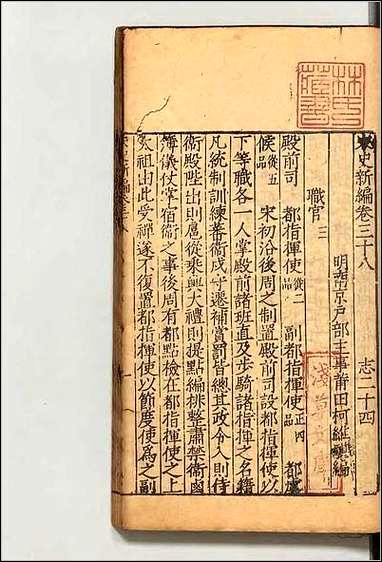 宋史新編卷三十八
志二十四
明南京戶部主事莆田柯維騏編
職官 三
殿前司 都指揮使從二品 副都指揮使正四品 都虞
候從五品 宋初沿後周之制置殿前司設都指揮使以
下等職各一人掌殿前諸班直及步騎諸指揮之名籍
凡統制訓練蕃衛戍守遷補賞罰皆總其政令入則侍
衛殿陛出則扈從乘輿大禮則提點編排整肅禁衛鹵
簿儀仗掌宿衛之事後周有都點檢在都指揮使之上
太祖由此受禪遂不復置都指揮使以節度使為之副
林氏藏書
淺草文庫